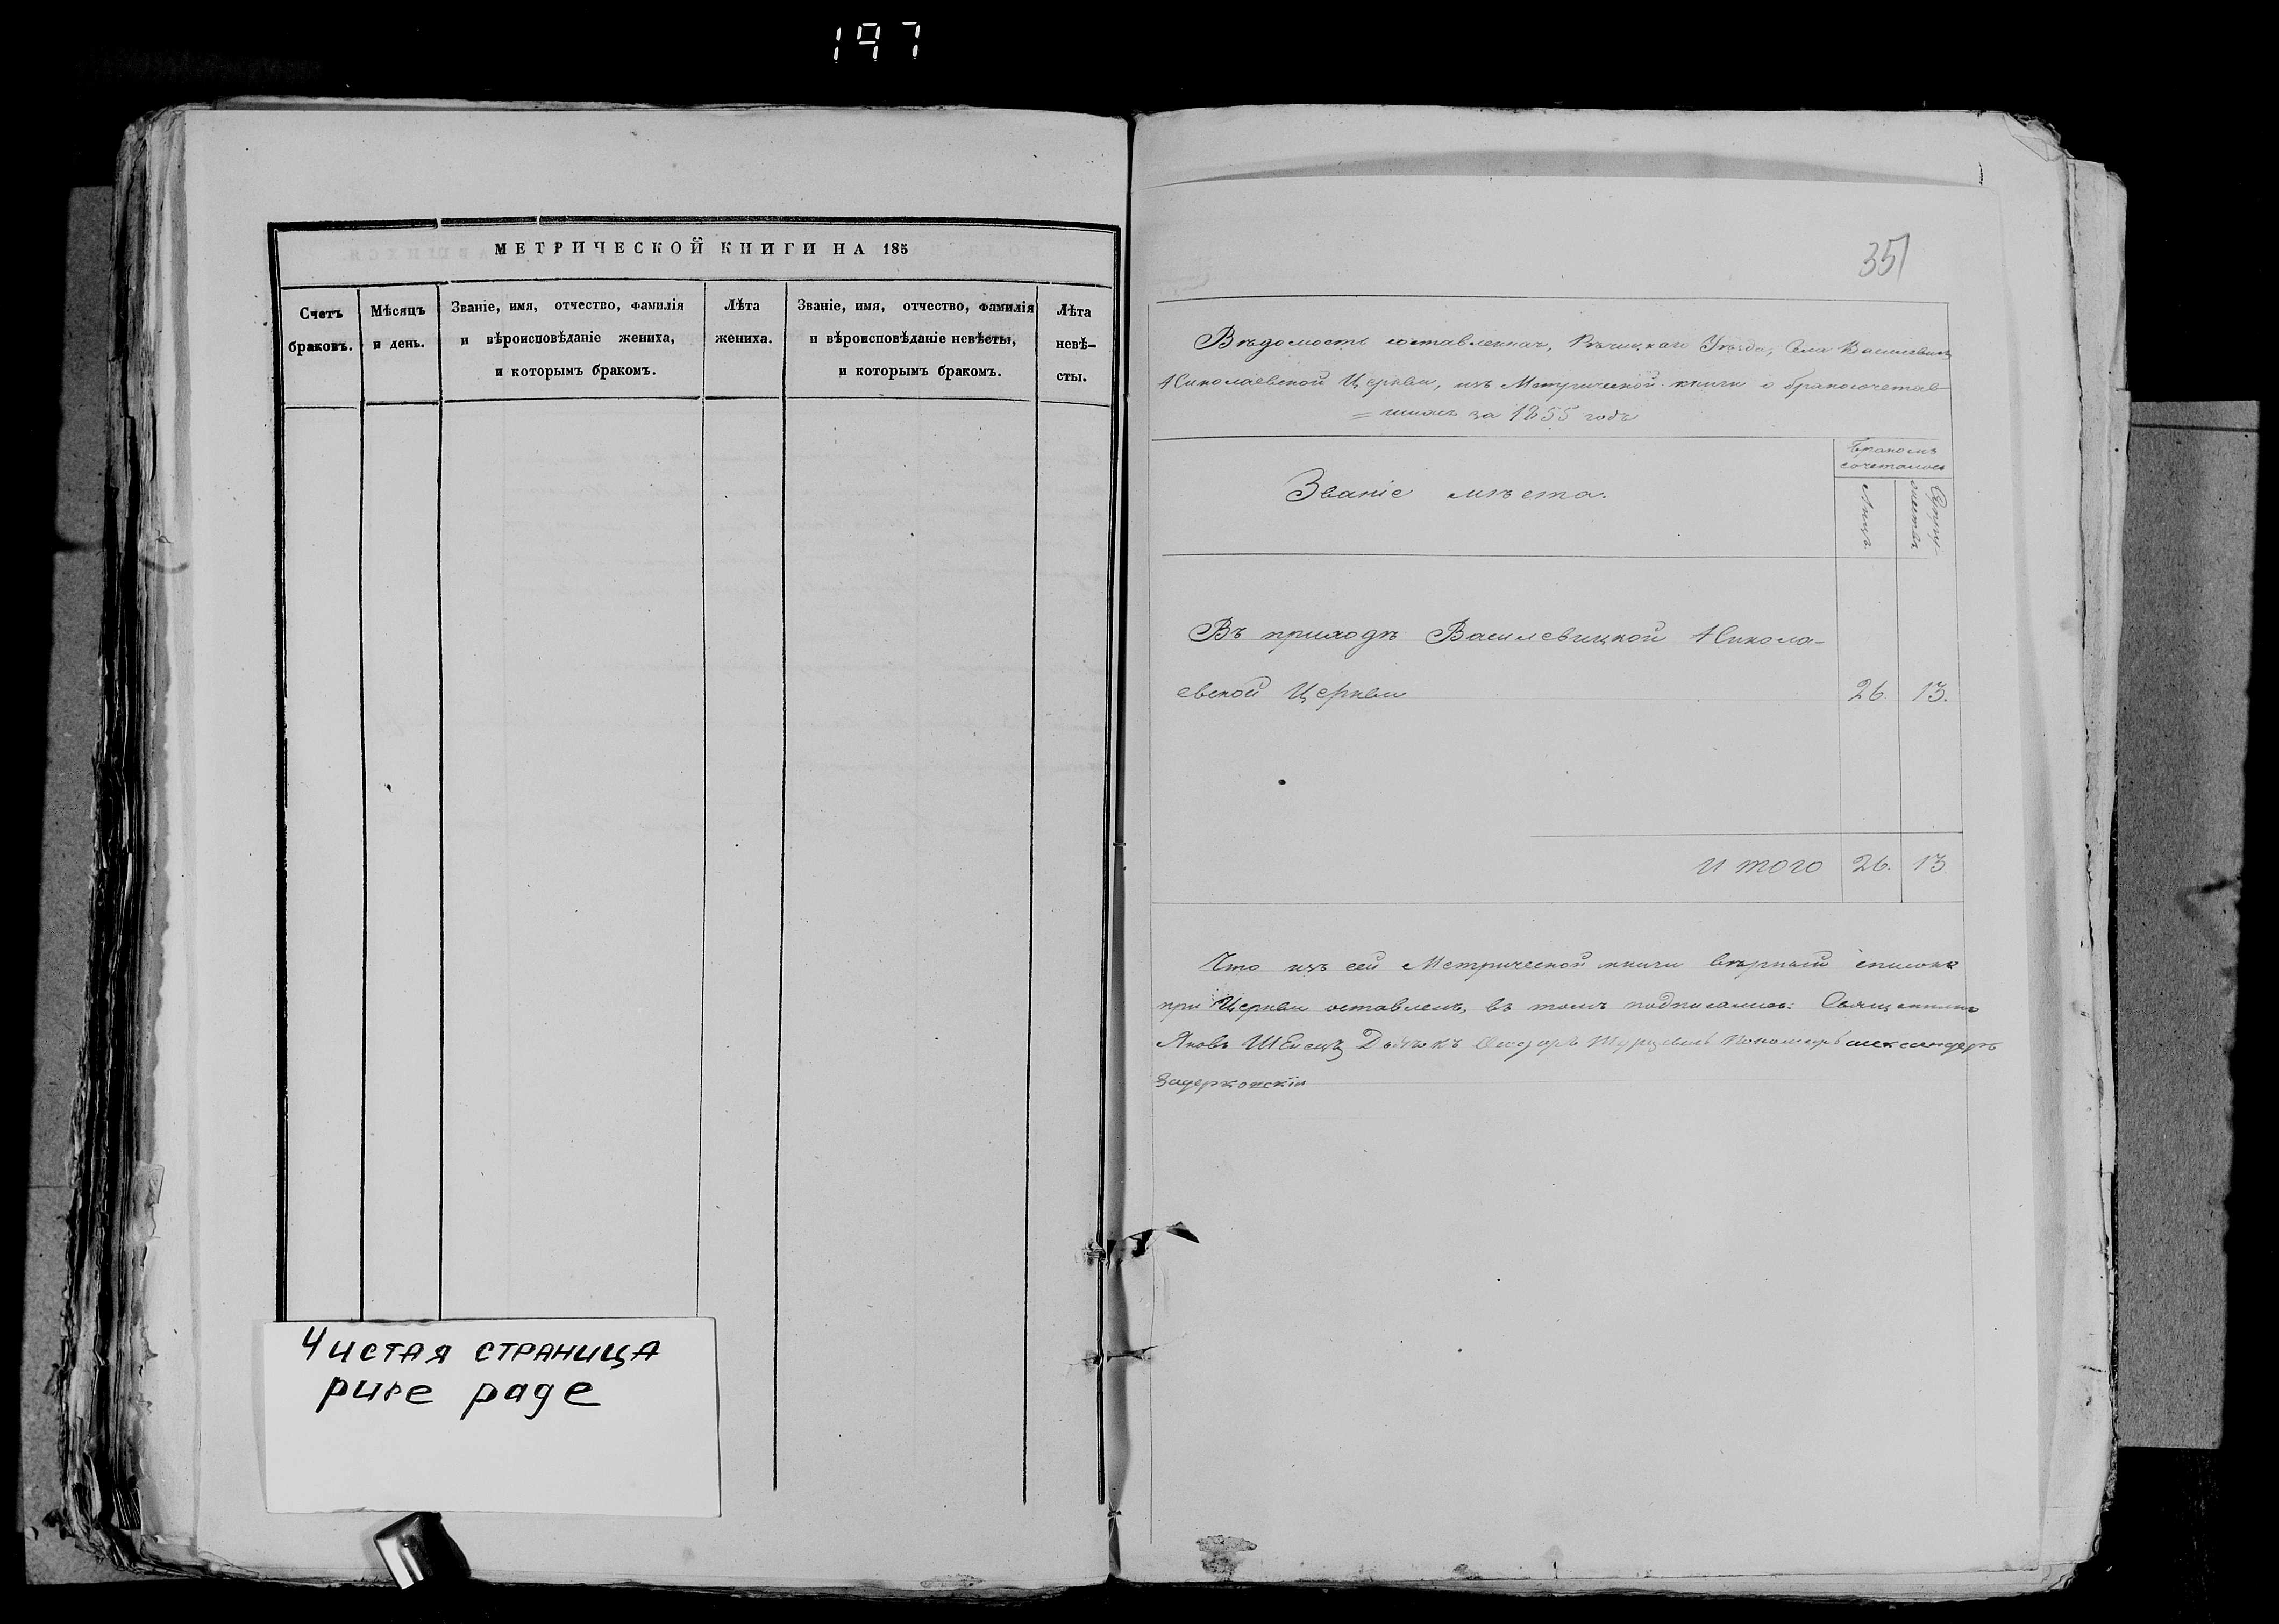 197
МЕТРИЧЕСКОЙ КНИГИ НА 185
Счетъ браковъ.
Мѣсяцъ и день.
Званіе, имя, отчество, фамилія
и вѣроисповѣданіе жениха,
и которымъ бракомъ.
Лѣта жениха.
Званіе, имя, отчество, фамилія
и вѣроисповѣданіе невѣсты,
и которымъ бракомъ.
Лѣта
невѣ-
сты.
Чистая страница
pure page
351
Вѣдомость составленная, Рѣчицкаго Уѣзда, Села Василевичь
Николаевской Церкви, изъ Метрической книги о бракосочетав-
=шихся за 1855 годъ
Званіе мѣста.
Бракомъ
сочеталось
Лицъ.
Супру-
жествъ
Въ приходѣ Василевицкой Никола-
евской Церкви 26. 13.
Итого 26. 13
Что изъ сей Метрической книги вѣрный списокъ
при Церкви оставленъ, въ томъ подписались: Священникъ
Яковъ Дьячокъ Феодоръ Пономарь Александръ